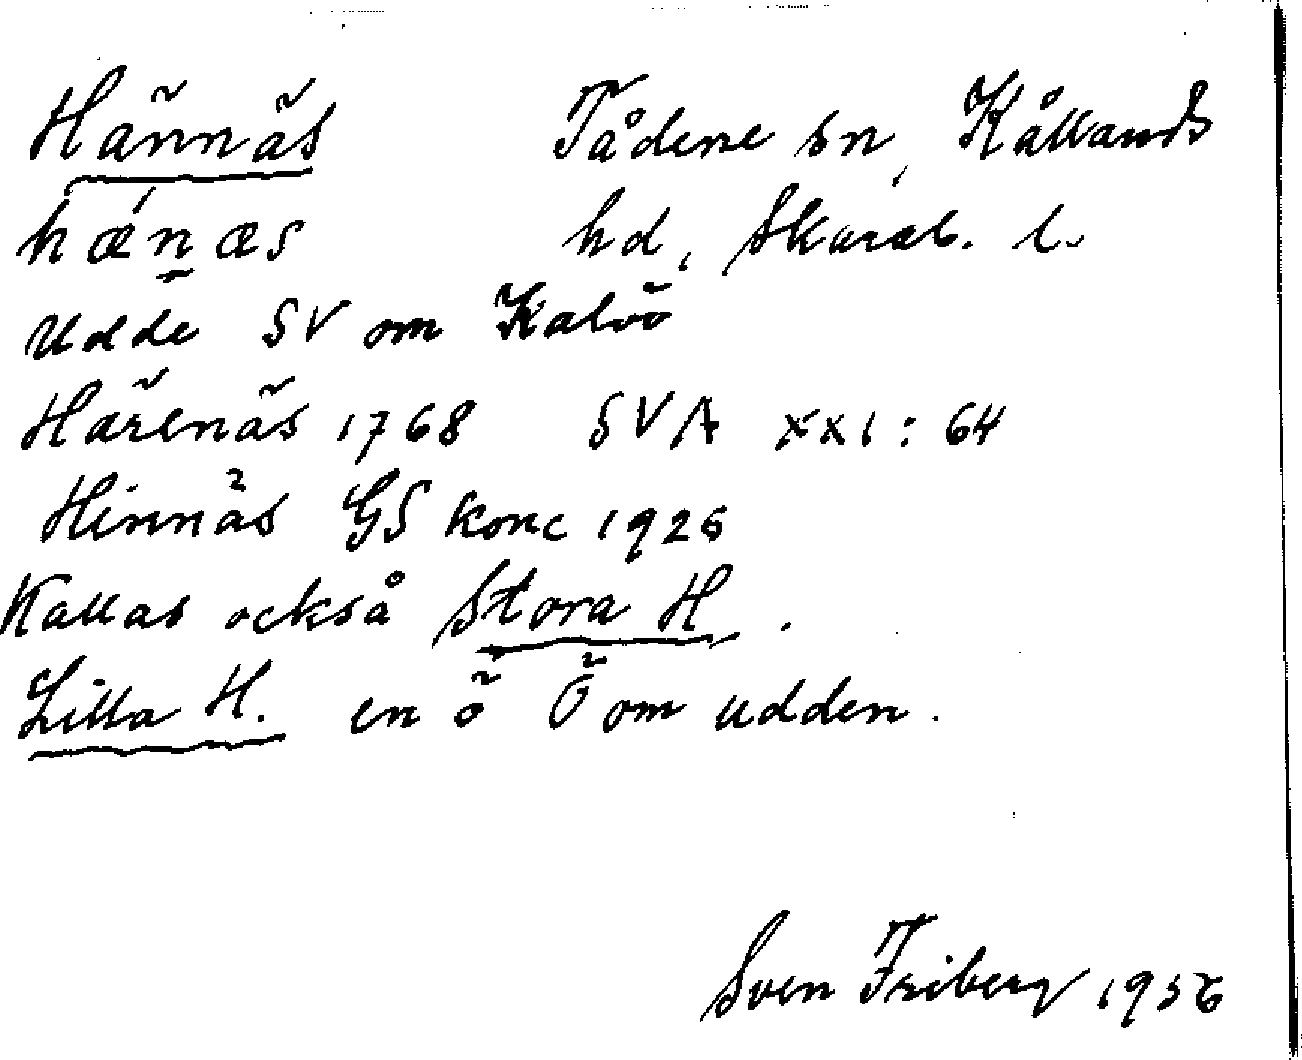 Hännäs Tådene sn, Kållands
hǽn̠æs hd, Skarab. l.
Udde SV om Kalvö
Härenäs 1768 SVA XXI: 64
Hinnäs GS konc 1926
Kallas också Stora H.
Lilla H. en ö Ö om udden.
Sven Friberg 1936